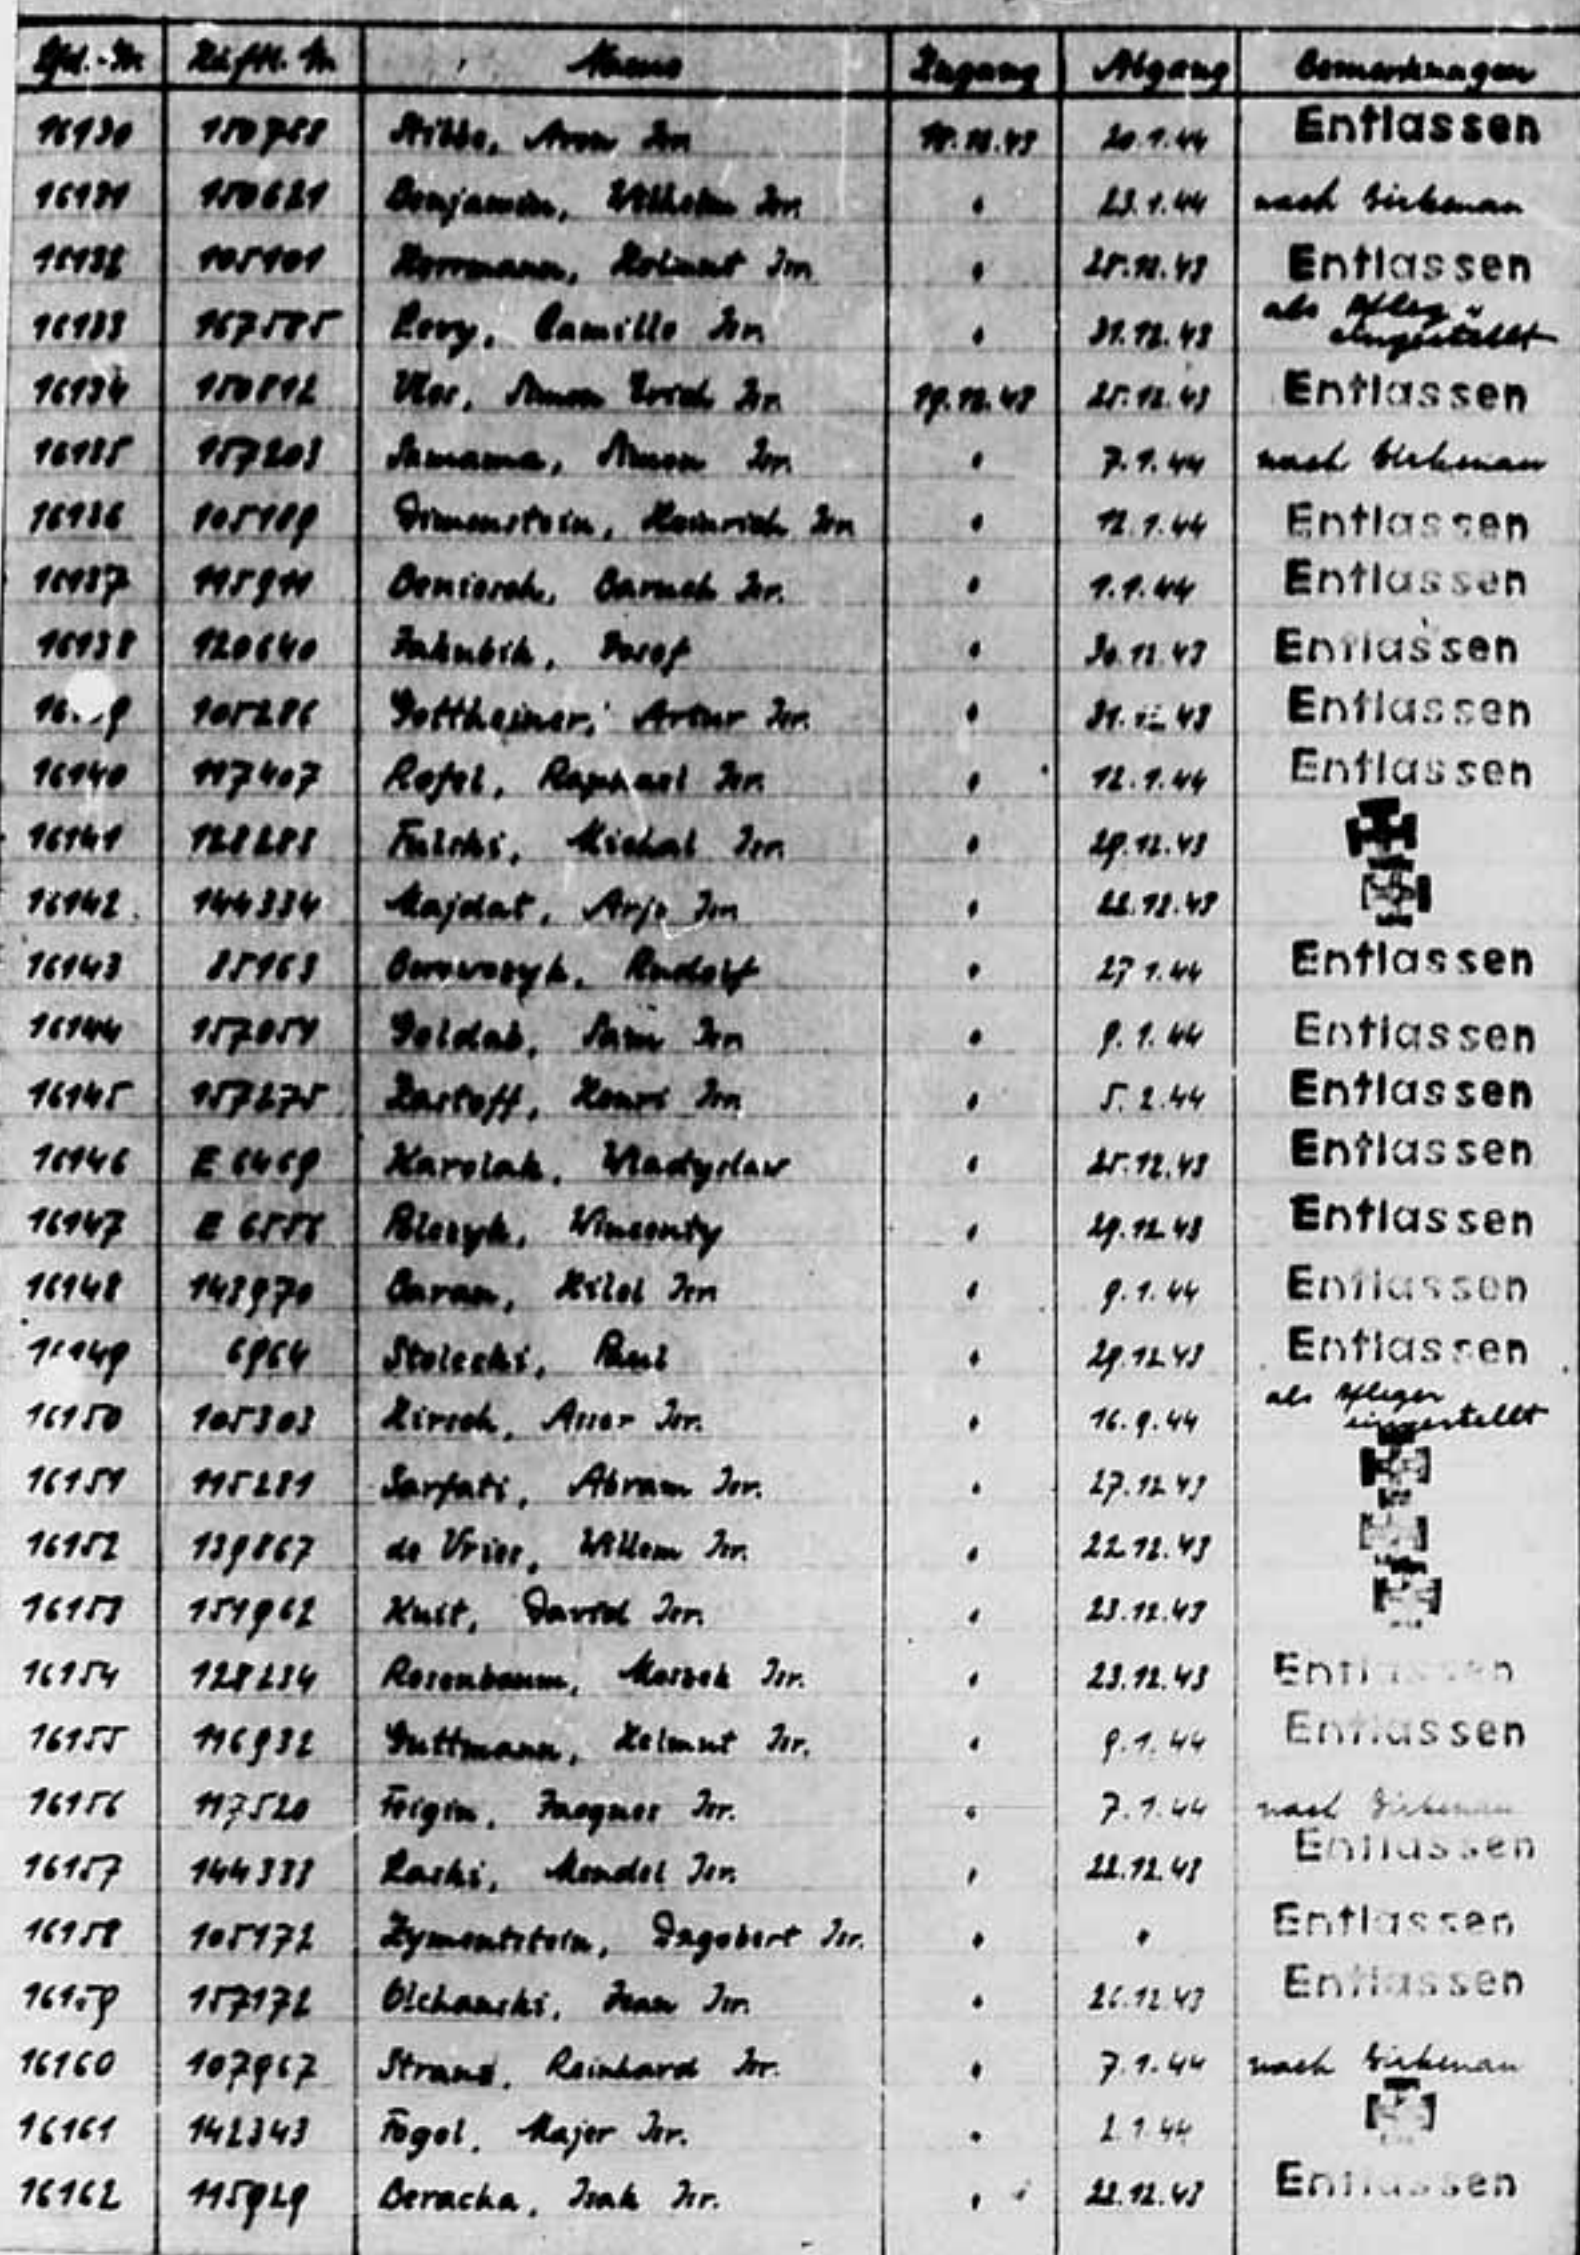 Lfd.-Nr. Häftl. Nr. Name Zugang Abgang Bemerkungen
16130 150788 Aron Isr. 18.12.43 20.1.44 Entlassen
16131 150621 Benjamin, Wilhelm Isr. " 23.1.44 nach Birkenau
16132 105101 Herrmann, Helmut Isr. " 25.12.43 Entlassen
16133 167585 Levy, Camille Isr. " 31.12.43 als Pfleger eingestellt
16134 150812 Simon Isr. 19.12.43 25.12.43 Entlassen
16135 157203 Samama, Simon Isr. " 7.1.44 nach Birkenau
16136 105189 Dimenstein, Heinrich Isr. " 12.1.44 Entlassen
16137 115911 Baruch Isr. " 1.1.44 Entlassen
16138 120640 Jakubik, Josef " 30.12.43 Entlassen
105286 Gottheiner, Artur Isr. " 31.12.43 Entlassen
16140 117407 Rafel, Raphael Isr. " 12.1.44 Entlassen
16141 128283 Michal Isr. " 29.12.43
16142 144334 Majdat, Arje Isr. " 22.12.43
16143 85163 Rudolf " 27.1.44 Entlassen
16144 157051 Isr. " 9.1.44 Entlassen
16145 157275 Henri Isr. " 5.2.44 Entlassen
16146 E 6469 Karolak, Wladyslaw " 25.12.43 Entlassen
16147 Wincenty " 29.12.43 Entlassen
16148 143970 Baran, Hilel Isr. " 9.1.44 Entlassen
16149 6964 Stolecki, Paul " 29.12.43 Entlassen
16150 105303 Hirsch, Isr. " 16.9.44 als Pfleger eingestellt
16151 115281 Sarfati, Abram Isr. " 27.12.43
16152 139867 de Vries, Willem Isr. " 22.12.43
16153 151962 Kuit, David Isr. " 23.12.43
16154 128234 Rosenbaum, Moszek Isr. " 23.12.43 Entlassen
16155 116932 Guttmann, Helmut Isr. " 9.1.44 Entlassen
16156 117520 Feigin, Jacques Isr. " 7.1.44 nach Birkenau
16157 144333 Laski, Mendel Isr. " 22.12.43 Entlassen
16158 105172 Dagobert Isr. " " Entlassen
16159 157172 Olchanski, Jean Isr. " 26.12.43 Entlassen
16160 107967 Reinhard Isr. " 7.1.44 nach Birkenau
16161 142343 Fogel, Majer Isr. " 2.1.44
16162 115929 Beracha, Isak Isr. " 22.12.43 Entlassen